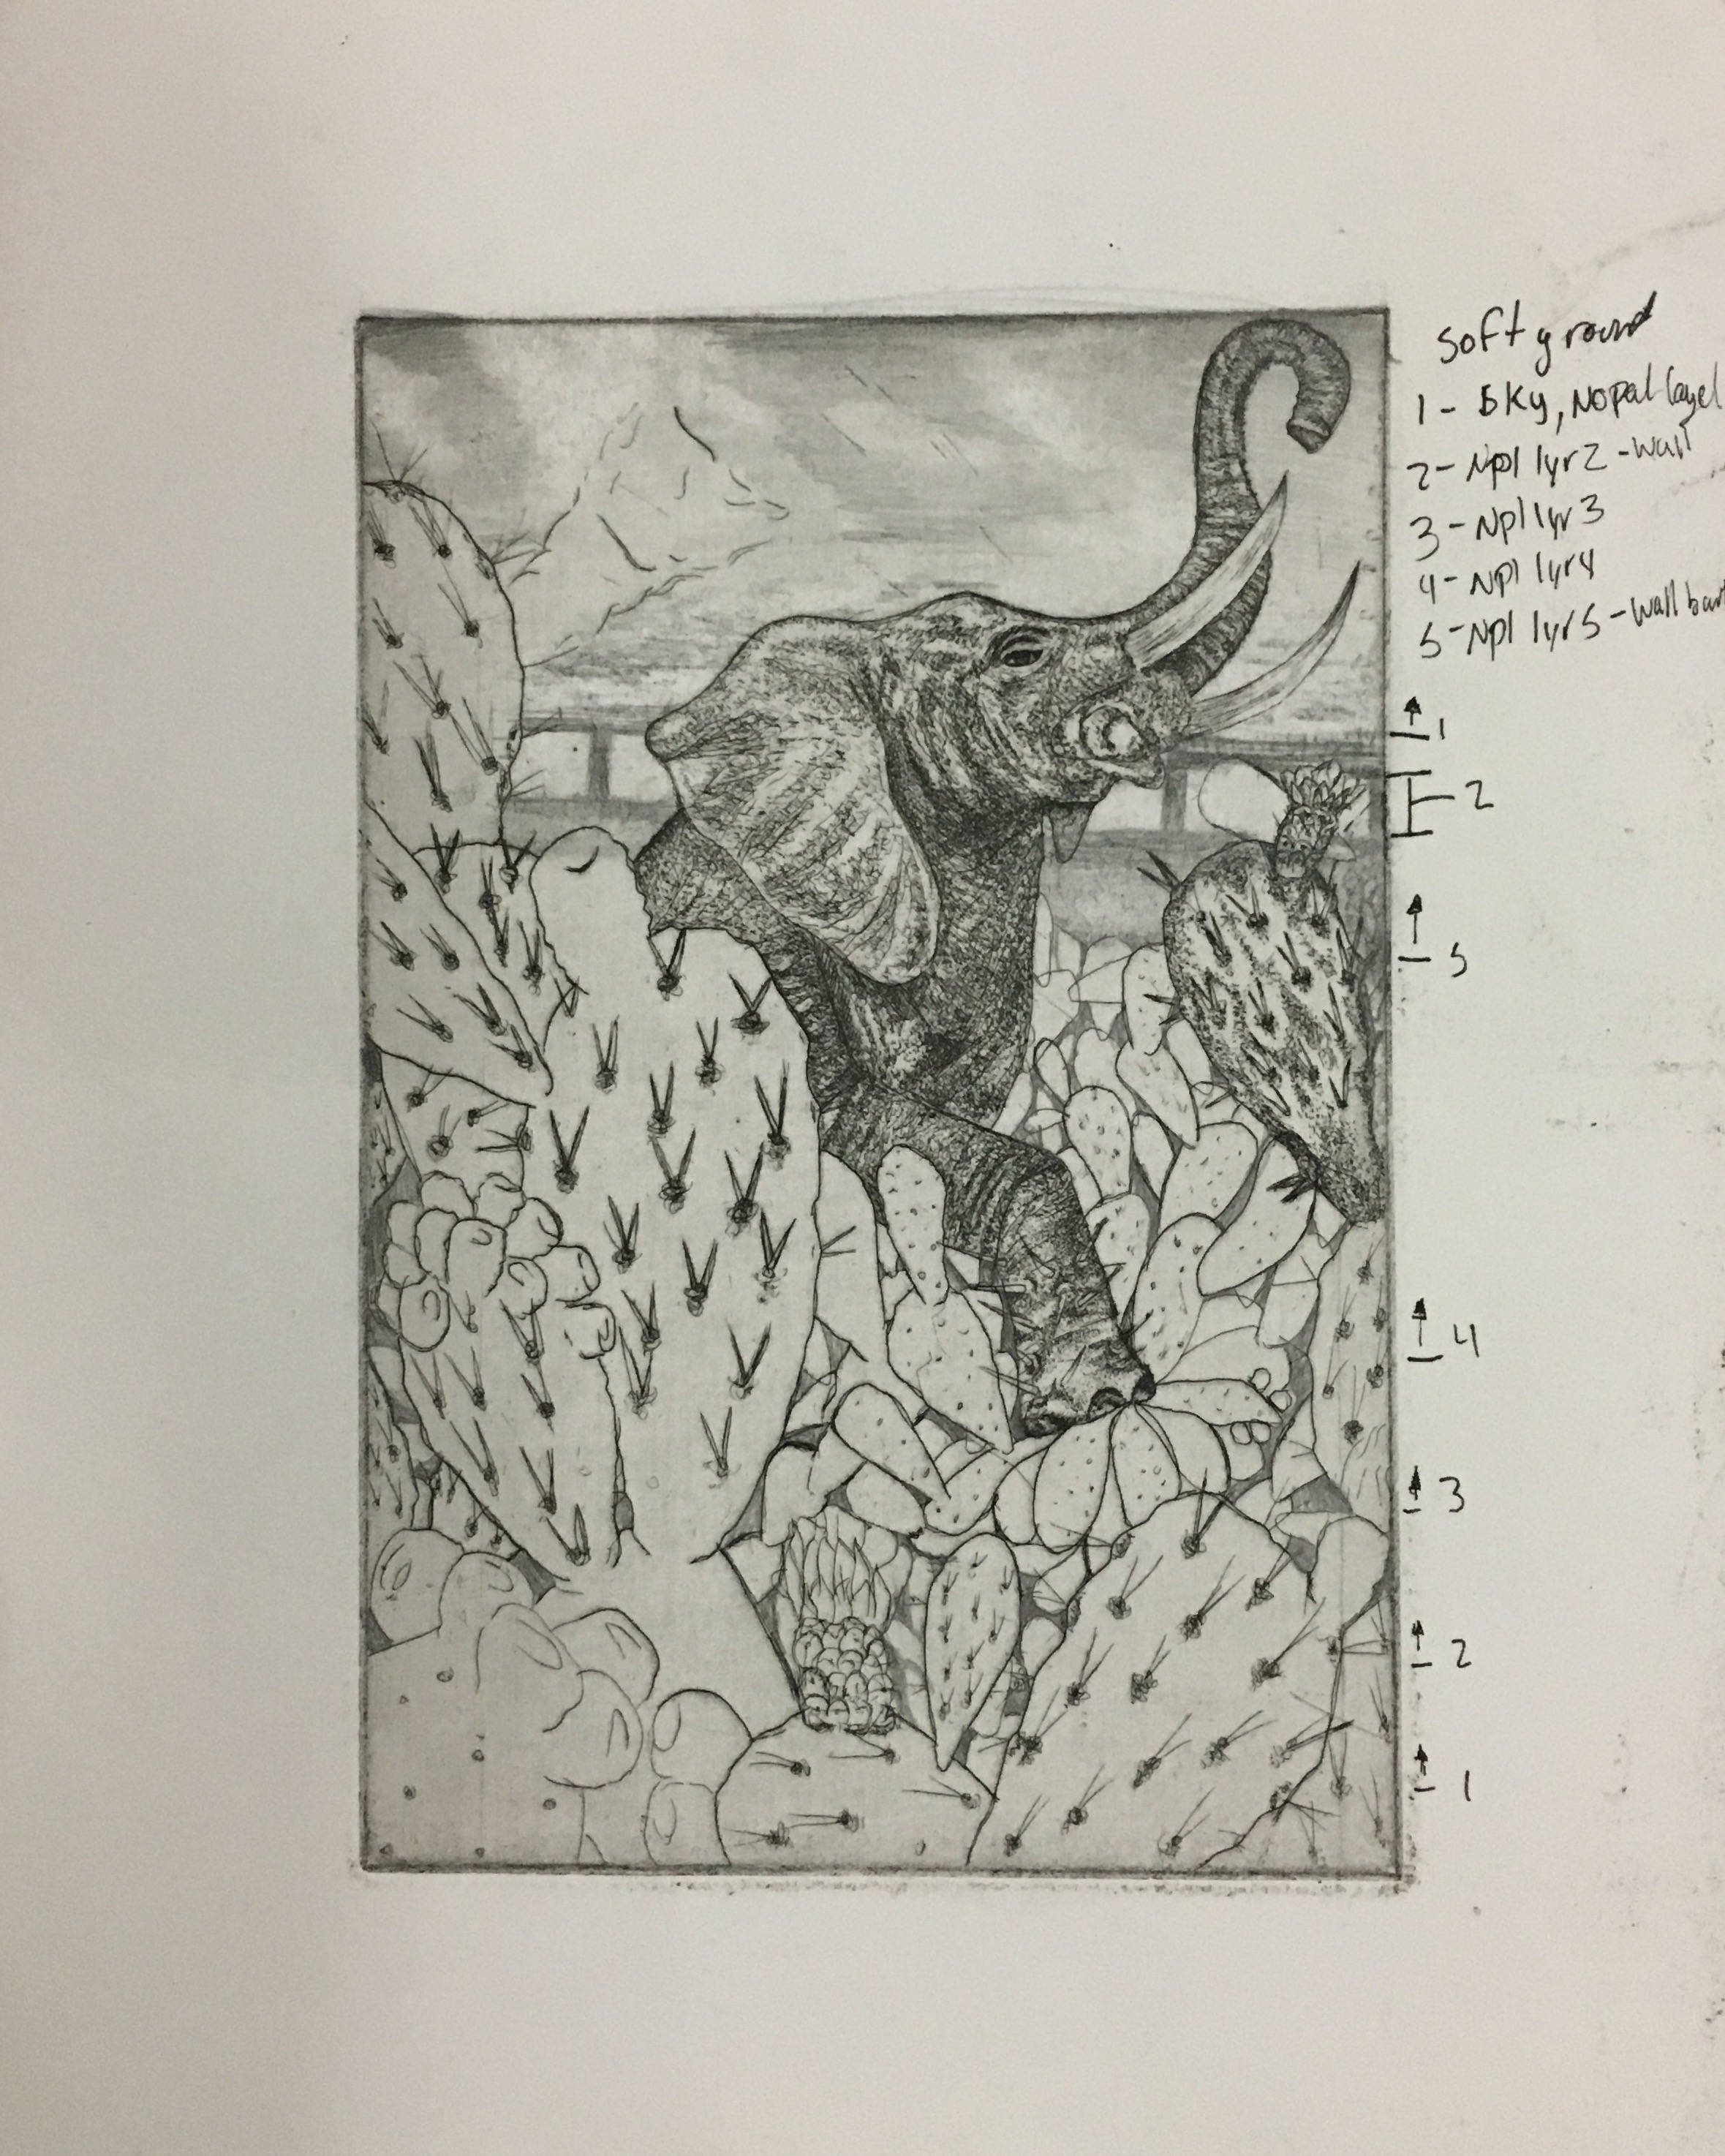 Soft ground
1 - Sky, Nopal layel
2 - Npl lyr2 - wall
3 - Npl lyr3
4 - Npl lyr4
5 - Npl lyr5 - wall
1
2
5
4
3
2
1